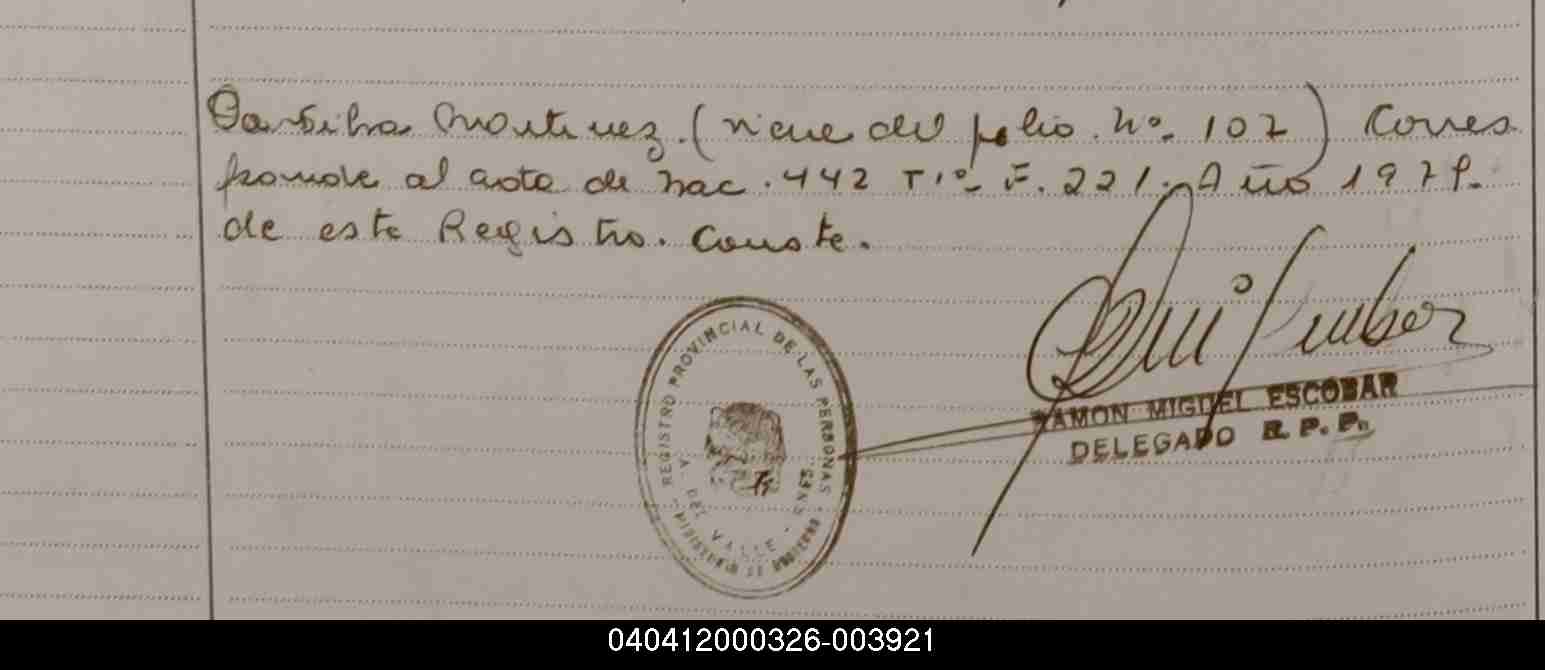 Martinez. (viene del folio Nº 107) Corres
ponde al acta de nac. 442 Tº 1º F. 221. Año 197
de este Registro. Conste.
REGISTRO PROVINCIAL DE LAS PERSONAS
MINISTERIO DE GOBIERNO
DEL VALLE
RAMON MIGUEL ESCOBAR
DELEGADO R. P. P.
040412000326-003921